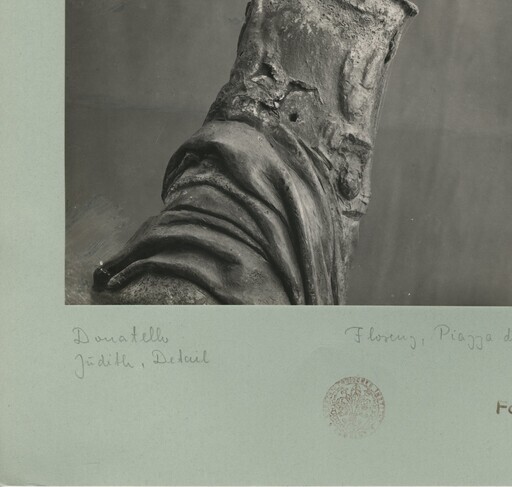 Donatello
Judith, Detail
Florenz, Piazza d
Fo